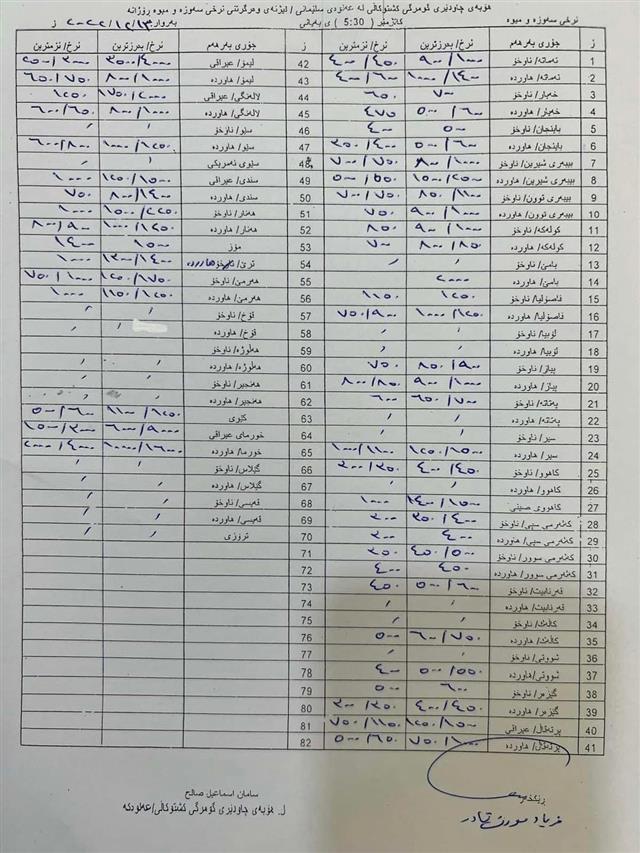 هۆبەی چاودێری گومرگی کشتوکاڵی لە عەلوەی سلێمانی / لیژنەی وەرگرتنی نرخی سەوزە و میوە ڕۆژانە
نرخی سەوزە و میوە کاتژمێر ( 5:30 ) ی بەیانی بەروار ٢٠٢٢/١٢/١٣ ز
ز جۆری بەرهەم نرخ/ بەرزترین نرخ/ نزمترین ز جۆری بەرهەم نرخ/ بەرزترین نرخ/ نزمترین
1 تەماتە/ ناوخۆ ١٠٠٠/٩٠٠ ٤٥٠/٤٠٠ 42 لیمۆ/ عیراقی ٤٠٠٠/٣٥٠٠ ٣٠٠٠/٢٥٠٠
2 تەماتە/ هاوردە ١٤٠٠/١٠٠٠ ٦٠٠/٤٠٠ 43 لیمۆ/ هاوردە ١٠٠٠/٨٠٠ ٧٥٠/٦٥٠
3 خەیار/ ناوخۆ ٧٠٠ ٦٥٠ 44 لالەنگی/ عیراقی ٢٠٠٠/١٧٥٠ ١٢٥٠
4 خەیار/ هاوردە ٦٠٠/٥٠٠ ٤٧٥ 45 لالەنگی/ هاوردە ١٠٠٠/٨٠٠ ٦٥٠/٦٠٠
5 باینجان/ ناوخۆ ٥٠٠ ٤٠٠ 46 سێو/ ناوخۆ
6 باینجان/ هاوردە ٦٠٠/٥٠٠ ٤٠٠/٣٥٠ 47 سێو/ هاوردە ١٢٥٠/١٠٠٠ ٨٠٠/٦٠٠
7 بیبەری شیرین/ ناوخۆ ١٠٠٠/٨٠٠ ٧٥٠/٧٠٠ 48 سێوی ئەمریکی
8 بیبەری شیرین/ هاوردە ١٢٥٠/١٠٠٠ ٥٥٠/٥٠٠ 49 سندی/ عیراقی ١٥٠٠/١٢٥٠ ١٠٠٠
9 بیبەری توون/ ناوخۆ ١١٠٠/٨٥٠ ٧٥٠/٧٠٠ 50 سندی/ هاوردە ١٤٠٠/٨٠٠ ٧٥٠
10 بیبەری توون/ هاوردە ١٠٠٠/٩٠٠ ٧٥٠ 51 هەنار/ ناوخۆ ٢٢٥٠/١٥٠٠ ١٠٠٠
11 کولەکە/ ناوخۆ ١٠٠٠/٩٠٠ ٨٥٠ 52 هەنار/ هاوردە ١٢٥٠/١٠٠٠ ٩٠٠/٨٠٠
12 کولەکە/ هاوردە ٨٥٠/٨٠٠ ٧٠٠ 53 مۆز ١٥٠٠ ١٤٠٠
13 بامێ/ ناوخۆ 54 ترێ/ هاوردە ١٤٠٠/١٢٠٠ ١٠٠٠
14 بامێ/ هاوردە ٢٠٠٠ 55 هەرمێ/ ناوخۆ ١٧٥٠/١٢٥٠ ١٠٠٠/٧٥٠
15 فاصۆلیا/ ناوخۆ ١٢٥٠ ١١٥٠ 56 هەرمێ/ هاوردە ١٢٥٠/١١٥٠ ١٠٠٠
16 فاصۆلیا/ هاوردە ١٢٥٠/١٠٠٠ ٩٠٠/٧٥٠ 57 قۆخ/ ناوخۆ
17 لۆبیا/ ناوخۆ 58 قۆخ/ هاوردە
18 لۆبیا/ هاوردە 59 هەڵوژە/ ناوخۆ
19 پیاز/ ناوخۆ ٩٠٠/٨٥٠ ٧٥٠ 60 هەڵوژە/ هاوردە
20 پیاز/ هاوردە ١٠٠٠/٩٠٠ ٨٥٠/٨٠٠ 61 هەنجیر/ ناوخۆ
21 پەتاتە/ ناوخۆ ٧٠٠/٦٥٠ ٦٠٠ 62 هەنجیر/ هاوردە
22 پەتاتە/ هاوردە 63 کێوی ١٢٥٠/١١٠٠ ٦٠٠/٥٠٠
23 سیر/ ناوخۆ 64 خورمای عیراقی ٩٠٠٠/٦٠٠٠ ٣٠٠٠/١٥٠٠
24 سیر/ هاوردە ١٥٠٠/١٢٥٠ ١١٠٠/١٠٠٠ 65 خورما/ هاوردە ١٦٠٠٠/١٠٠٠٠ ٤٠٠٠/٢٠٠٠
25 کاهوو/ ناوخۆ ٤٥٠/٤٠٠ ٣٥٠/٣٠٠ 66 گێلاس/ ناوخۆ
26 کاهوو/ هاوردە 67 گێلاس/ هاوردە
27 کاهووی صینی ١٥٠٠/١٤٠٠ ١٠٠٠ 68 قەیسی/ ناوخۆ
28 کەلەرمی سپی/ ناوخۆ ٤٠٠/٣٥٠ ٣٠٠ 69 قەیسی/ هاوردە
29 کەلەرمی سپی/ هاوردە ٤٠٠ ٣٠٠ 70 تروزی
30 کەلەرمی سوور/ ناوخۆ ٥٠٠/٤٥٠ ٣٥٠ 71
31 کەلەرمی سوور/ هاوردە ٤٥٠ ٤٠٠ 72
32 قەرنابیت/ ناوخۆ ٦٠٠/٥٠٠ ٤٥٠ 73
33 قەرنابیت/ هاوردە 74
34 کاڵەک/ ناوخۆ 75
35 کاڵەک/ هاوردە ٧٥٠/٦٠٠ ٥٠٠ 76
36 شووتی/ ناوخۆ 77
37 شووتی/ هاوردە ٥٥٠/٥٠٠ ٤٠٠ 78
38 گێزەر/ ناوخۆ ٦٠٠ ٥٠٠ 79
39 گێزەر/ هاوردە ٤٥٠/٤٠٠ ٣٥٠/٣٠٠ 80
40 پرتەقاڵ/ عیراقی ١٥٠٠/١٢٥٠ ١١٥٠/٧٥٠ 81
41 پرتەقاڵ/ هاوردە ١٠٠٠/٧٥٠ ٦٥٠/٥٠٠ 82
ڕێکخەر
سامان اسماعیل صالح
ل. هۆبەی چاودێری گومرگی کشتوکاڵی/ عەلوەکە